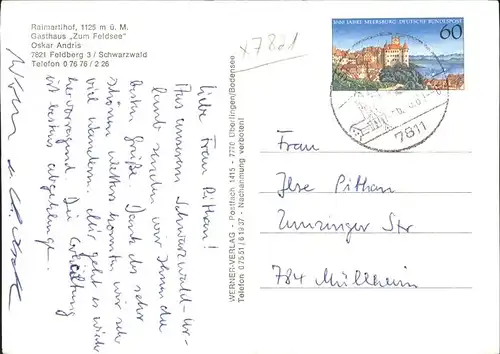 Raimartihof, 1125 m ü. M.
Gasthaus „Zum Feldsee"
Oskar Andris
7821 Feldberg 3 / Schwarzwald
Telefon 0 76 76 / 2 26
x7821
1000 JAHRE MEERSBURG · DEUTSCHE BUNDESPOST
60
7811
Liebe Frau Pithan!
Aus unserem Schwarzwald-Ur-
laub senden wir Ihnen die
besten Grüße. Dank des sehr
schönen Wetters konnten wir sehr
viel wandern. Mir geht es wieder
hervorragend. Die
ist bestens abgeklungen.
WERNER-VERLAG - Postfach 1415 - 7770 Überlingen/Bodensee
Telefon 0 75 51 / 6 19 37 - Nachahmung verboten!
Frau
Ilse Pithan
Zunzinger Str
784 Müllheim